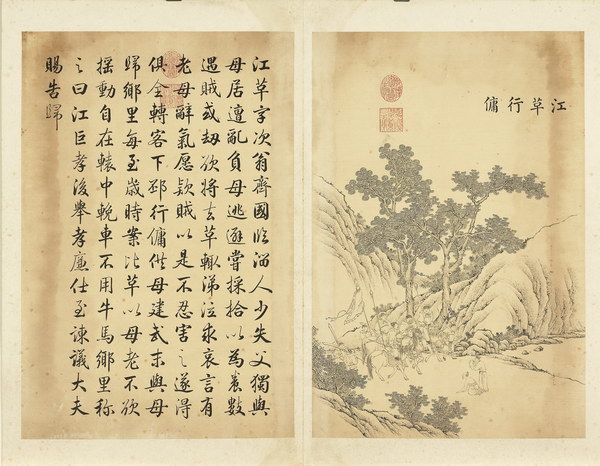 江革行傭
江革字次翁齊國臨淄人少失父獨與
母居遭亂負母逃避嘗採拾以為養數
遇賊或劫欲將去革輒涕泣求哀言有
老母辭氣愿款賊以是不忍害之遂得
俱全轉客下邳行傭供母建武末與母
歸鄉里每至歲時案比革以母老不欲
搖動自在轅中輓車不用牛馬鄉里稱
之曰江巨孝後舉孝廉仕至諫議大夫
賜告歸